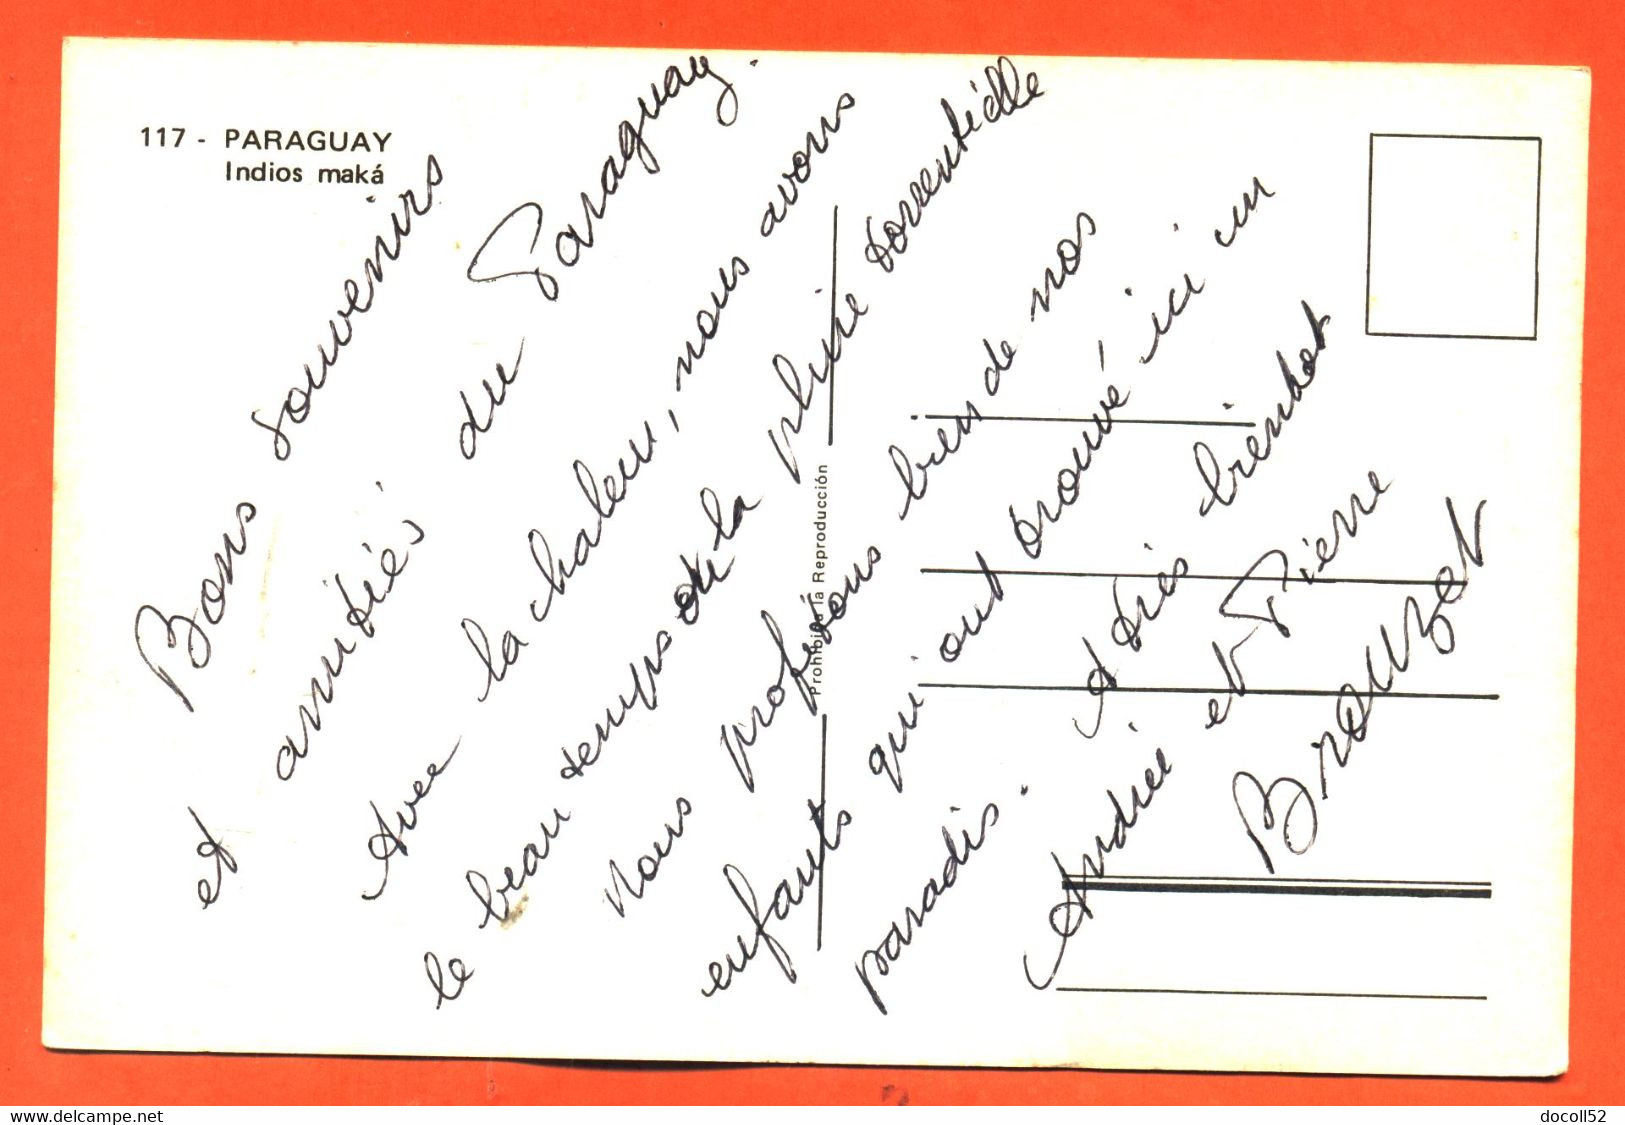 117 - PARAGUAY
Indios maká
Bons souvenirs
et amitiés du Paraguay.
Avec la chaleur, nous avons
le beau temps ou la pluie torrentielle
Nous profitons bien de nos
enfants qui ont trouvé ici un
paradis. A très bientot
Andrée et Pierre
Brouzet
Prohibida la Reproducción
www.delcampe.net
docoll52